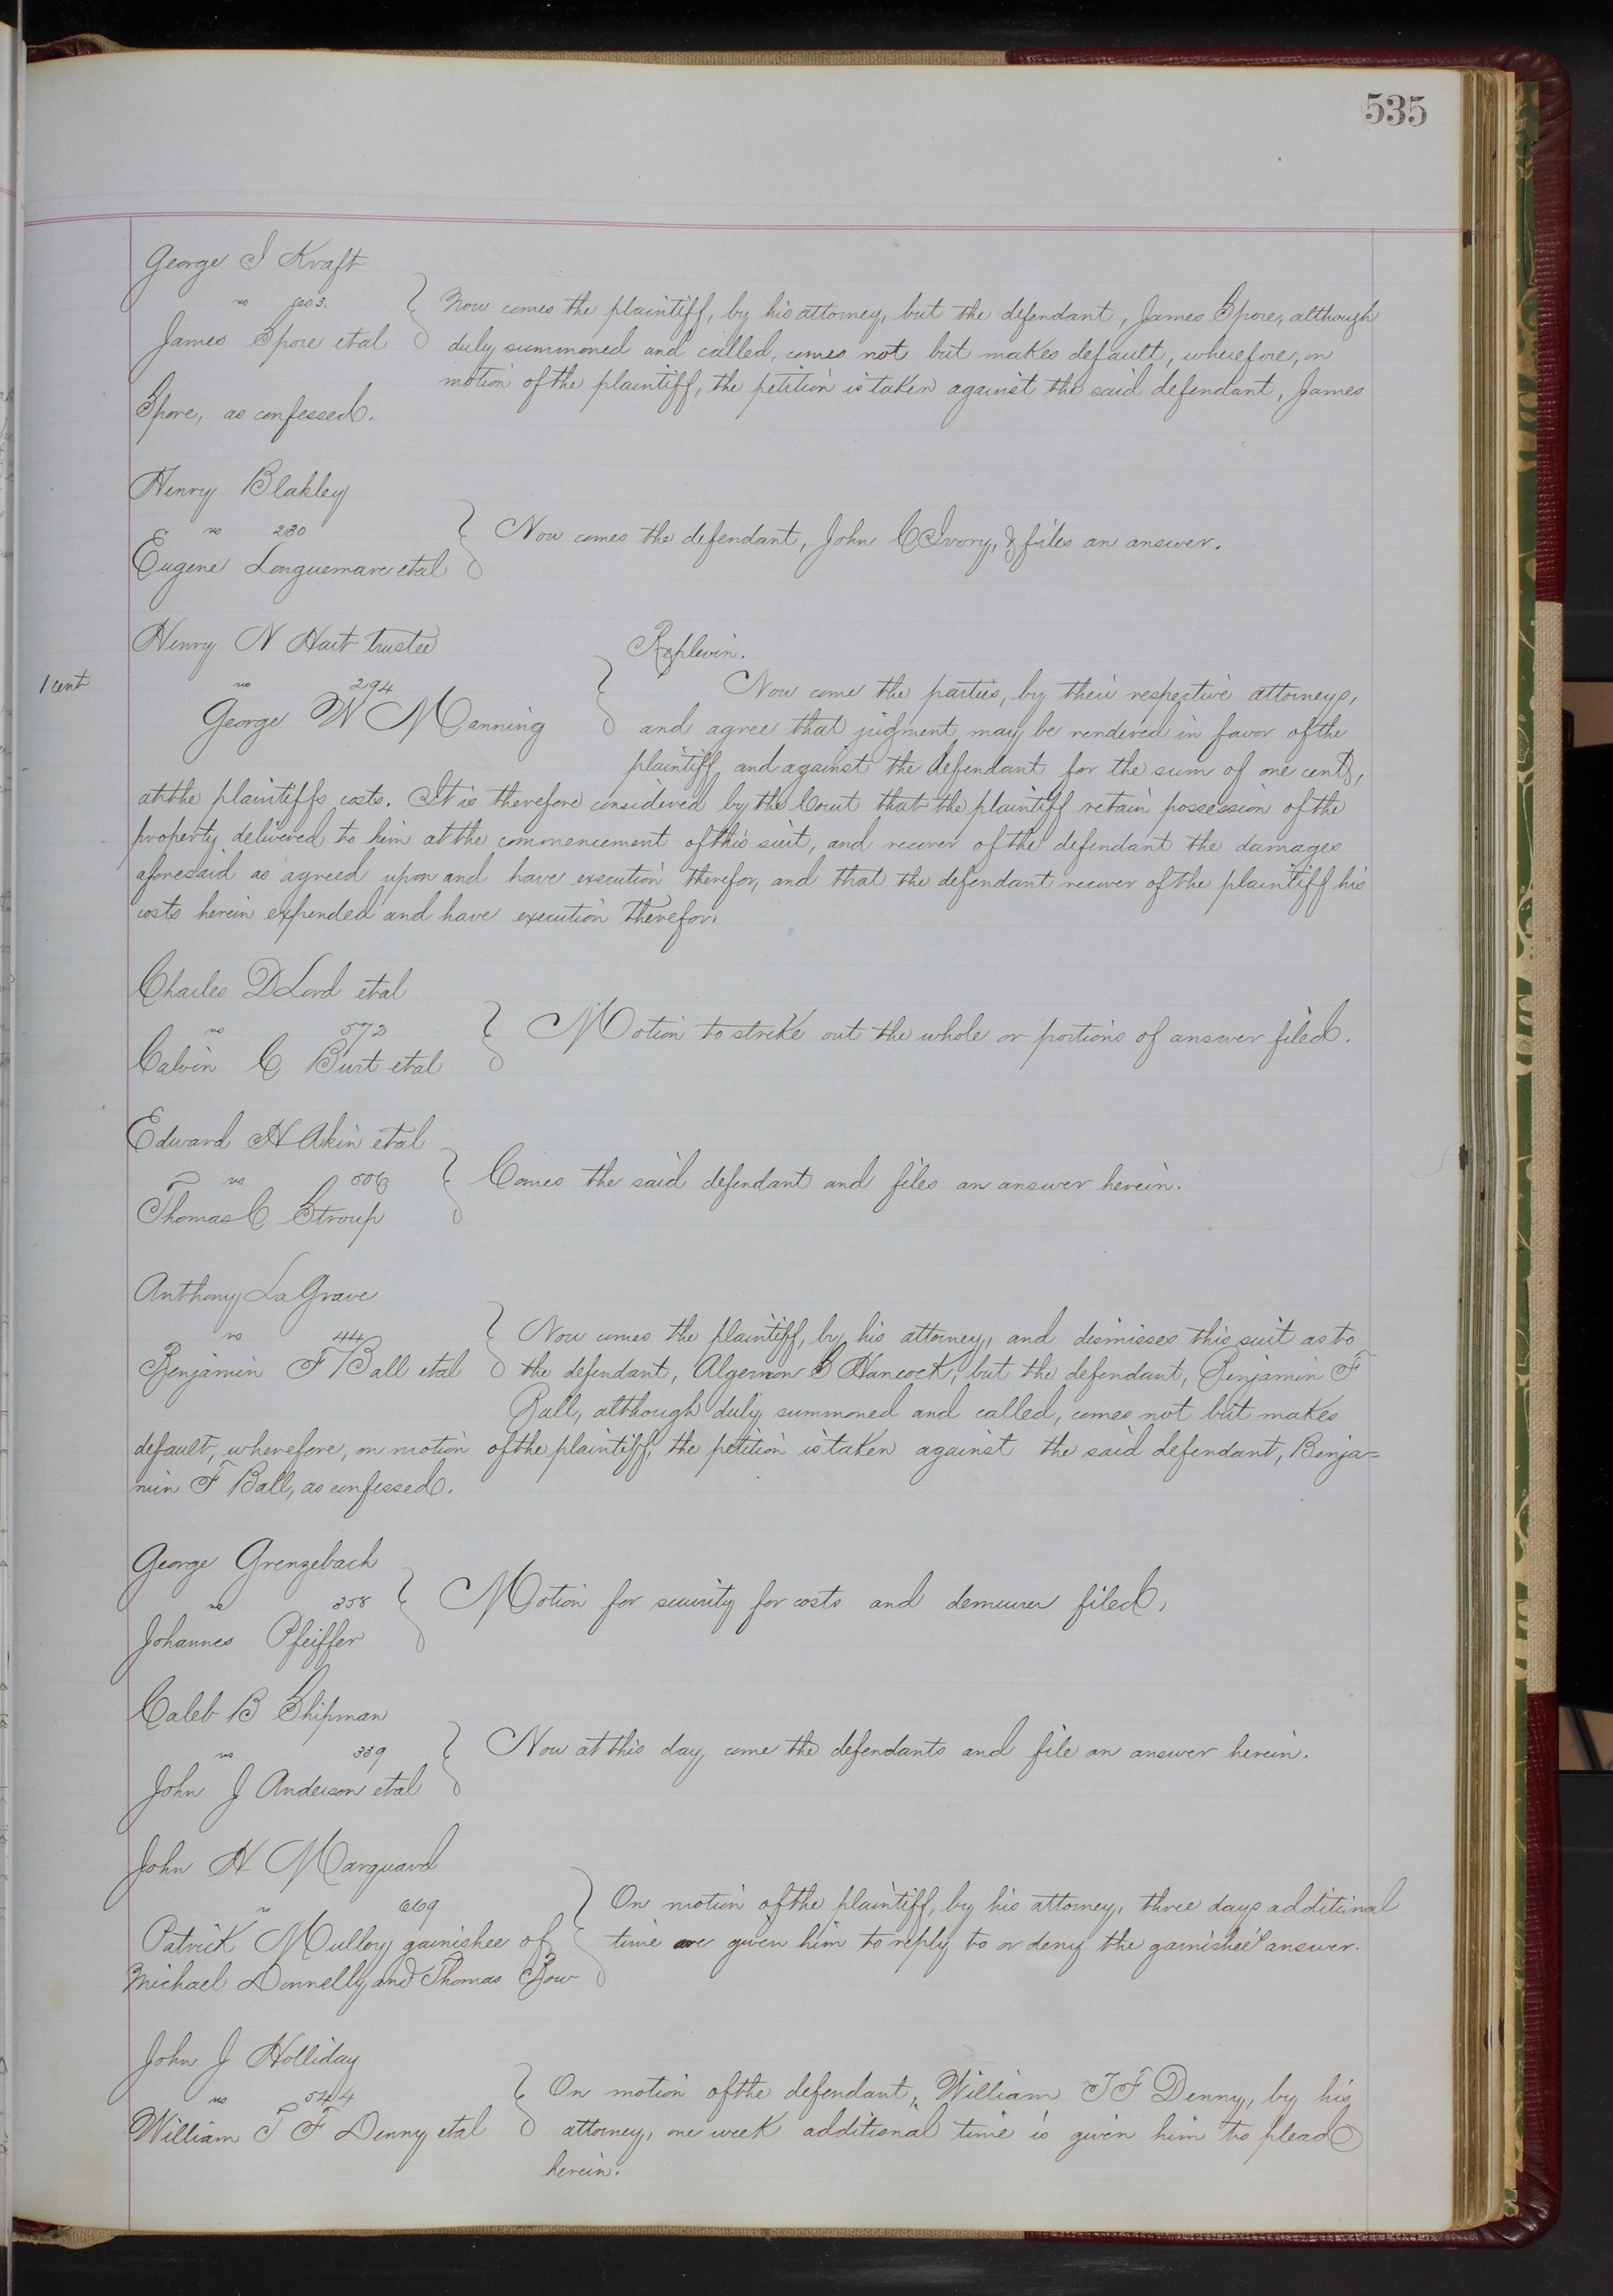 535
George I Kraft
vs
James Spore et al
Now comes the plaintiff, by his attorney, but the defendant, James Spore, although
duly summoned and called, comes not but makes default, wherefore, on
motion of the plaintiff, the petition is taken against the said defendant, James
Spore, as confessed.
Henry Blakley
vs 230
Eugene Longuemare et al
Now comes the defendant, John C Ivory, & files an answer.
Henry N Hart trustee
1 cent
vs 294
George W Manning
Replevin.
Now come the parties, by their respective attorneys,
and agree that judgment may be rendered in favor of the
plaintiff and against the defendant for the sum of one cent,
at the plaintiffs costs. It is therefore considered by the Court that the plaintiff retain possession of the
property delivered to him at the commencement of this suit, and recover of the defendant the damages
aforesaid as agreed upon and have execution therefor, and that the defendant recover of the plaintiff his
costs herein expended and have execution therefor.
Charles D Lord et al
vs 573
Calvin C Burt et al
Motion to strike out the whole or portions of answer filed.
Edward H Akin et al
vs 506
Thomas C Stroup
Comes the said defendant and files an answer herein.
Anthony La Grave
vs 44
Benjamin F Ball et al
Now comes the plaintiff, by his attorney, and dismisses this suit as to
the defendant, Algernon S Hancock, but the defendant, Benjamin F
Ball, although duly summoned and called, comes not but makes
default, wherefore, on motion of the plaintiff, the petition is taken against the said defendant, Benja=
min F Ball, as confessed.
George Grenzebach
vs 358
Johannes Pfeiffer
Motion for security for costs and demurrer filed.
Caleb B Shipman
vs 339
John J Anderson et al
Now at this day come the defendants and file an answer herein.
John H Marquard
vs 669
Patrick Mulloy garnishee of
Michael Donnelly and Thomas Row
On motion of the plaintiff, by his attorney, three days additional
time are given him to reply to or deny the garnishee's answer.
John J Holliday
vs 544
William T F Denny et al
On motion of the defendant, William T F Denny, by his
attorney, one week additional time is given him to plead
herein.